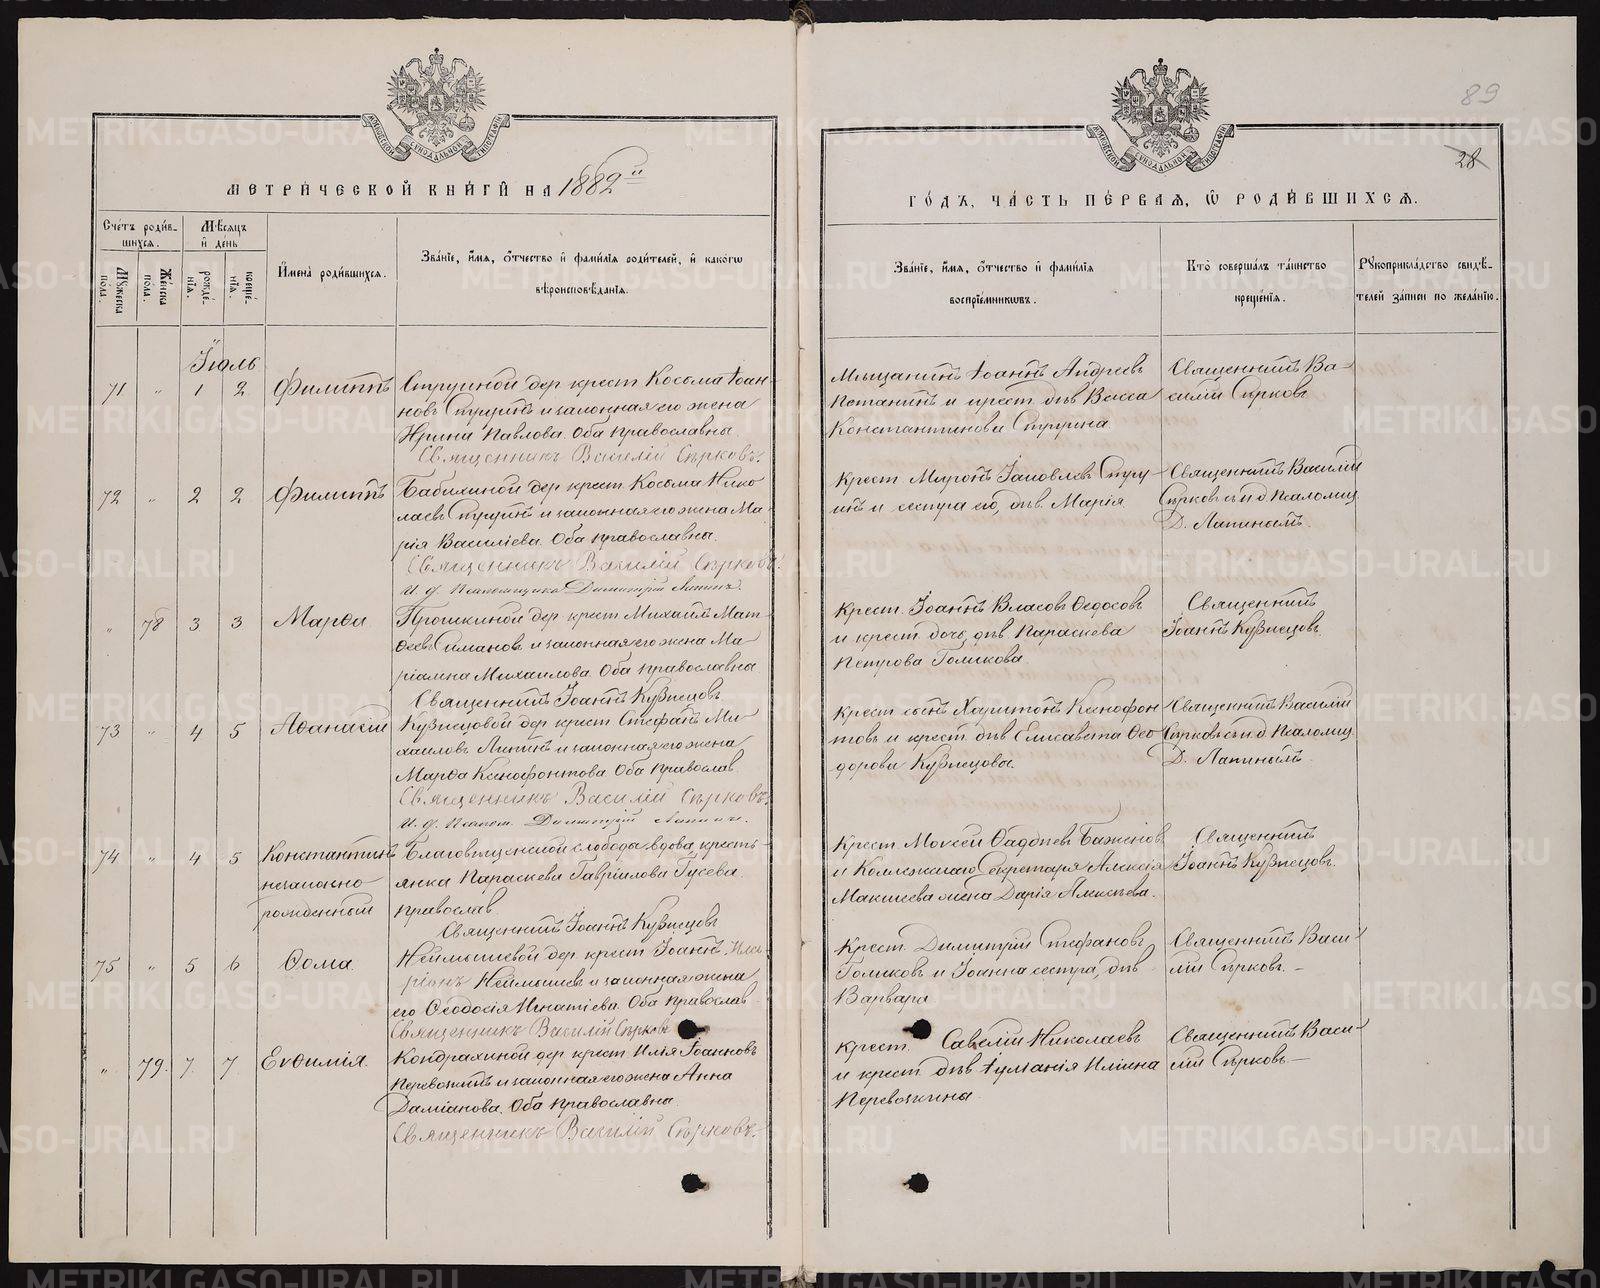 МЕТРИЧЕСКОЙ КНИГИ НА 1882й
Счетъ родившихся.
Мужеска пола.
Женска пола.
Мѣсяцъ и день
рожденія.
крещенія.
Имена родившихся.
Званіе, имя, отчество и фамилія родителей, и какого
вѣроисповѣданія.
Іюль
71 " 1 2 Филиппъ
Струиной дер крест Косьма Іоан-
новъ Струинъ и законная его жена
Ирина Павлова. Оба православны
Священникъ Василій Сѣрковъ.
72 " 2 2 Филиппъ
Бабихиной дер крест. Косьма Нико
лаевъ Струинъ и законная его жена Ма-
рія Василіева. Оба православны.
Священникъ Василій Сѣрковъ.
И. д. Псаломщика Димитрій Лапинъ.
" 78 3 3 Марѳа
Прошкиной дер крест Михаилъ Мат-
ѳеевъ Симановъ и законная его жена Ма-
ріамна Михаилова. Оба православны
Священникъ Іоаннъ Кузнецовъ
73 " 4 5 Аѳанасій
Кузнецовой дер крест Стефанъ Ми-
хаиловъ Липинъ и законная его жена
Марѳа Ксенофонтова. Оба православ.
Священникъ Василій Сѣрковъ.
И. д. Псалом. Димитрій Лапинъ.
74 " 4 5 Константинъ
незаконно-
рожденный
Благовѣщенской слободы вдова, кресть-
янка Параскева Гавріилова Гусева.
православ
Священникъ Іоаннъ Кузнецовъ
75 " 5 6 Ѳома.
Неймышевой дер крест Іоаннъ Ила-
ріонъ Неймышев и законная жена
его Ѳеодосія Игнатіева. Оба православ
Священникъ Василій Сѣрковъ
" 79. 7. 7. Евѳимія.
Кондрахиной дер крест Илія Іоанновъ
Перевозкинъ и законная его жена Анна
Даміанова. Оба православна
Священникъ Василій Сѣрковъ.
89
28
ГОДЪ, ЧАСТЬ ПЕРВАЯ, Ѡ РОДИВШИХСЯ.
Званіе, имя, отчество и фамилія
воспріемниковъ.
Кто совершалъ таинство
крещенія.
Рукоприкладство свидѣ-
телей записи по желанію.
Мѣщанинъ Іоаннъ Андреевъ
и крест. дѣв Васса
Константинова Струина
Священникъ Ва-
силій Сѣрковъ
Крест Миронъ Іаковлевъ Стру
инъ и сестра его, дѣв. Марія.
Священникъ Василій
Сѣрковъ съ и д Псаломщ.
Д. Лапинымъ.
Крест. Іоаннъ Власов Ѳедосов
и крест. дочь, дѣв. Параскева
Петрова Голикова
Священникъ
Іоаннъ Кузнецовъ.
Крест сынъ Харитонъ Ксенофон
товъ и крест дѣв Елисавета Ѳео
дорова Кузнецовы.
Священникъ Василій
Сѣрковъ съ и д. Псаломщ.
Д. Лапинымъ.
Крест. Моисей Ѳаддѣев Баженов
и Коллежскаго Секретаря Алексія
Макшеева жена Дарія Алексѣева.
Священникъ
Іоаннъ Кузнецовъ.
Крест. Димитрій Стефановъ
Голиковъ и Іоанна сестра, дѣв
Варвара
Священникъ Васи-
лій Сѣрковъ.-
Крест. Савелій Николаевъ
и крест. дѣв Іуліанія Иліина
Перевозкина.
Священникъ Васи-
лій Сѣрковъ-
METRIKI.GASO-URAL.RU